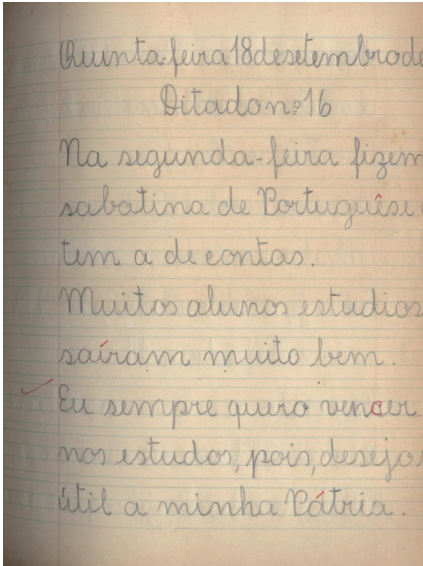 Quinta-feira 18 de setembro de
Ditado nº 16
Na segunda-feira fizem
sabatina de Português e
tem a de contas.
Muitos alunos estudios
saíram muito bem.
Eu sempre quero vencer
nos estudos, pois, desejo
útil a minha Pátria.